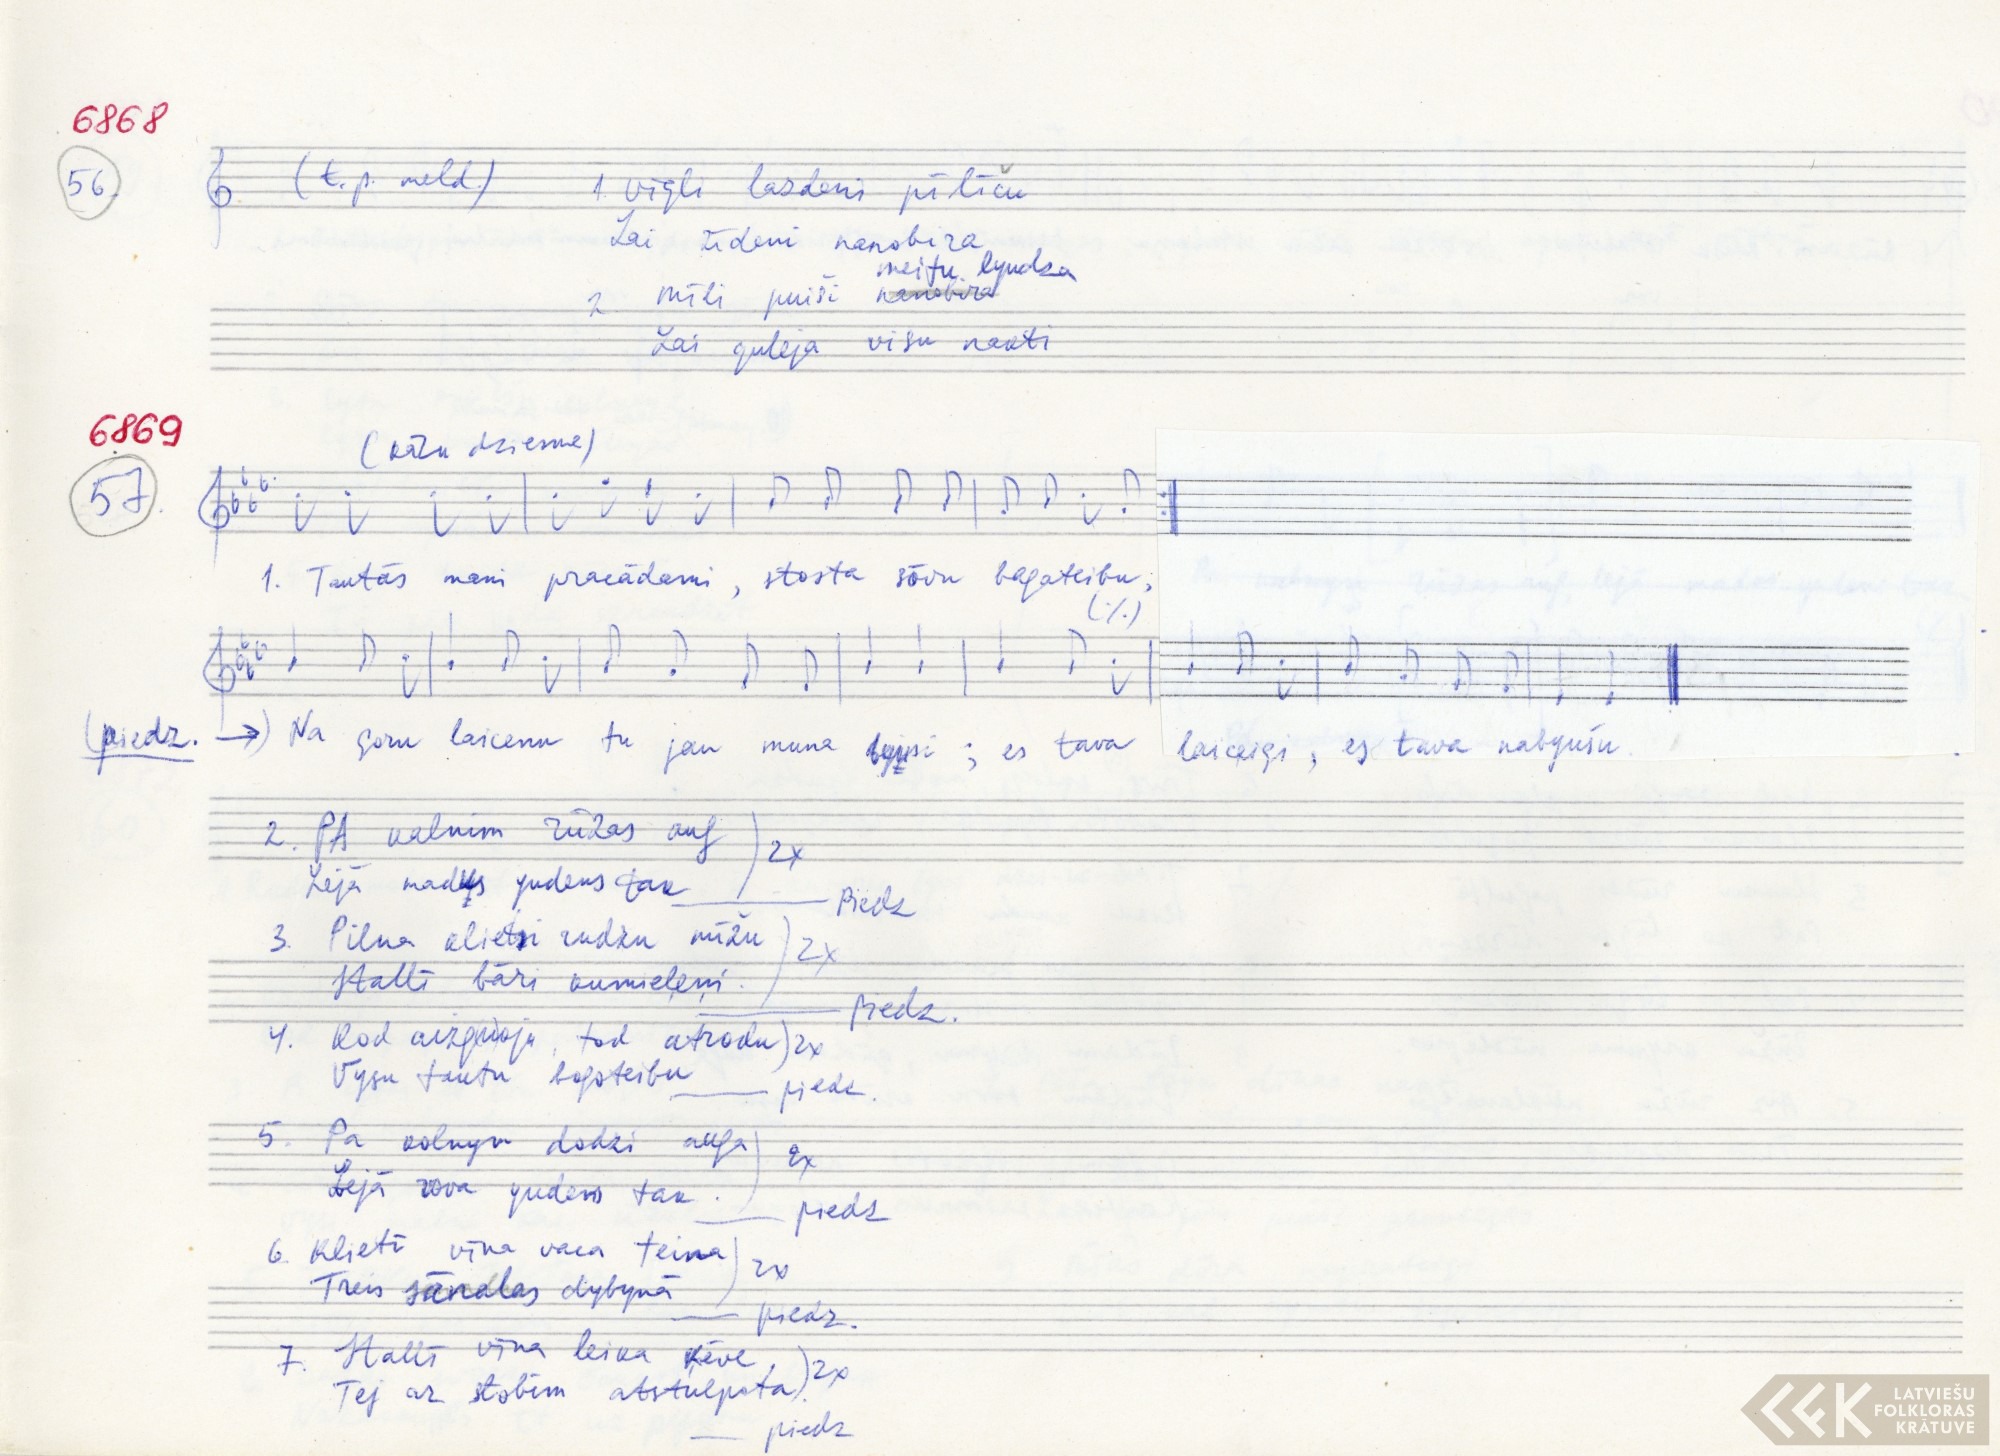 6868
56.
(t. p. meld.)
1. Vīgli lazdeni pīlīču
Lai zīdeni nanobira
meitu lyudza
2. Mīli puiši nanobira
Lai gulēja visu nakti
6869
57.
(kāzu dziesme)
1. Tautās mani pracādami, stosta sōvu bagateibu;
(·/.)
(piedz. →) Na goru laicenu tu jau muna byusi; es tava laiceigi; es tava nabyušu.
2. PA kalnim rūžas aug
Lejā madus yudens tak
) 2x
Piedz
3. Pilna klieti rudzu mīžu
Stallī bāri kumieleņi.
) 2x
piedz.
4. Kod aizguoja, tod atrodu
Vysu tautu bogoteibu
) 2x
piedz.
5. Pa kolnym dodzi auga
Lejā rova yudens tak.
) 2x
piedz
6. Klietī vīna vaca teina
Treis sānalas dybynā
) 2x
piedz.
7. Stallī vīna leika ķēve,
Tej ar stobim atstulpota.
) 2x
piedz
LATVIEŠU
FOLKLORAS
KRĀTUVE